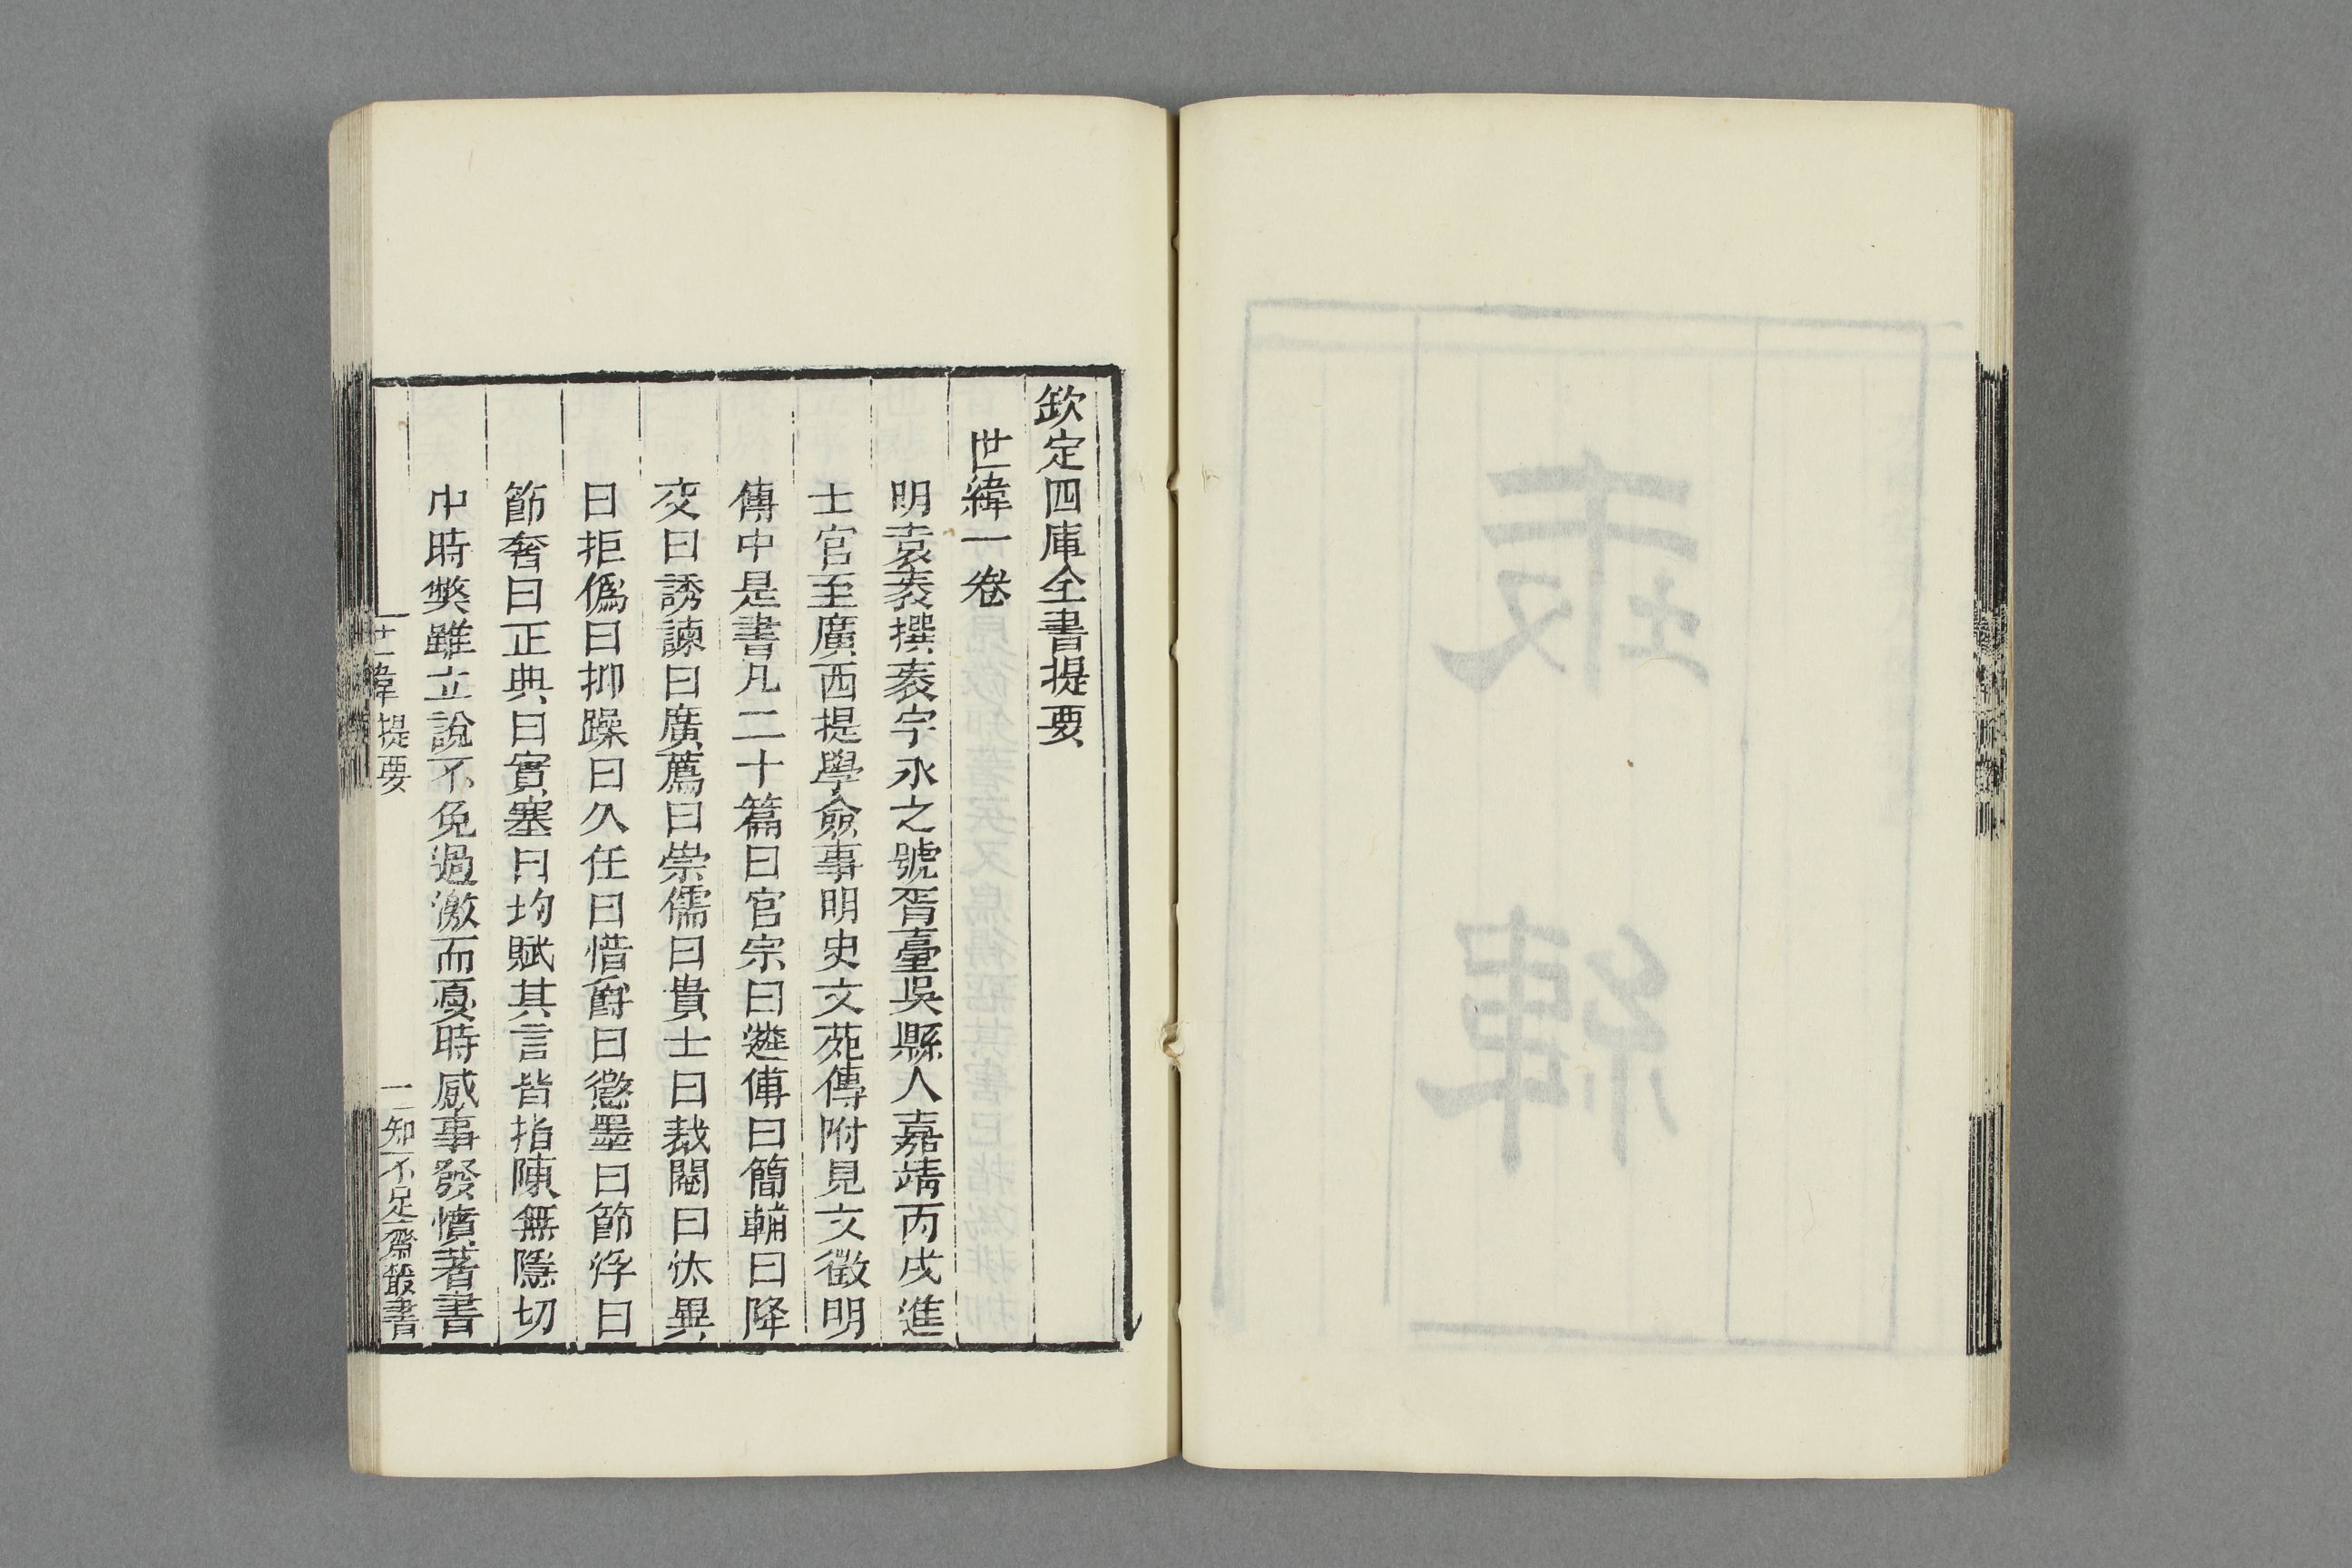 欽定四庫全書提要
世緯一卷
明袁袠撰袠字永之號胥臺吳縣人嘉靖丙戌進
士官至廣西提學僉事明史文苑傳附見文徵明
傳中是書凡二十篇曰官宗曰遴傅曰簡輔曰降
交曰誘諫曰廣薦曰崇儒曰貴士曰裁閹曰汰異
曰拒僞曰抑躁曰久任曰惜爵曰懲墨曰節浮曰
節奢曰正典曰實塞曰均賦其言皆指陳無隱切
中時弊雖立說不免過激而憂時感事發憤著書
世緯提要
一知不足齋叢書